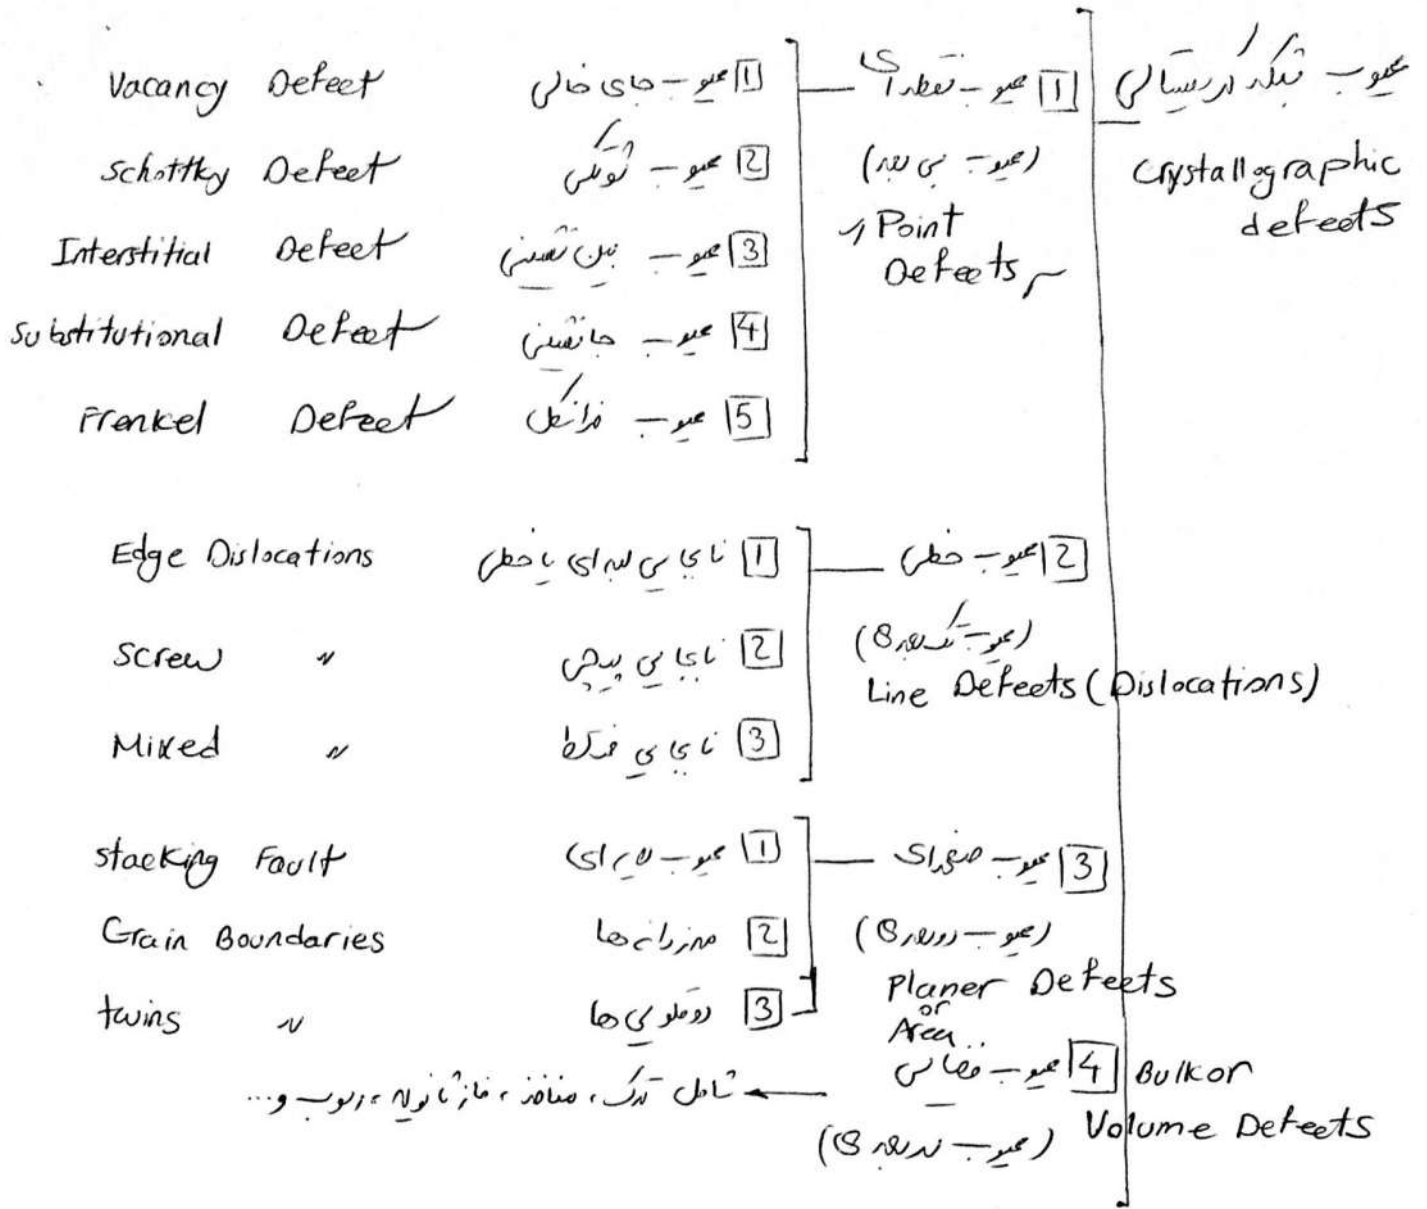 عیوب شبکه کریستالی
Crystallographic
defects
1 عیوب نقطه‌ای
(عیوب بی بعد)
Point
Defects
1 عیوب جای خالی Vacancy Defect
2 عیوب شوتکی Schottky Defect
3 عیوب بین نشینی Interstitial Defect
4 عیوب جانشینی Substitutional Defect
5 عیوب فرانکل Frenkel Defect
2 عیوب خطی
(عیوب تک بعدی)
Line Defects (Dislocations)
1 نابجایی لبه‌ای یا خطی Edge Dislocations
2 نابجایی پیچی Screw "
3 نابجایی مختلط Mixed "
3 عیوب صفحه‌ای
(عیوب دوبعدی)
Planer Defects
or
Area
1 عیوب لایه‌ای Stacking Fault
2 مرزدانه‌ها Grain Boundaries
3 دوقلویی‌ها twins "
4 عیوب فضایی Bulk or
Volume Defects
(عیوب سه بعدی)
شامل ترک، منافذ، فاز ثانویه، رسوب و...